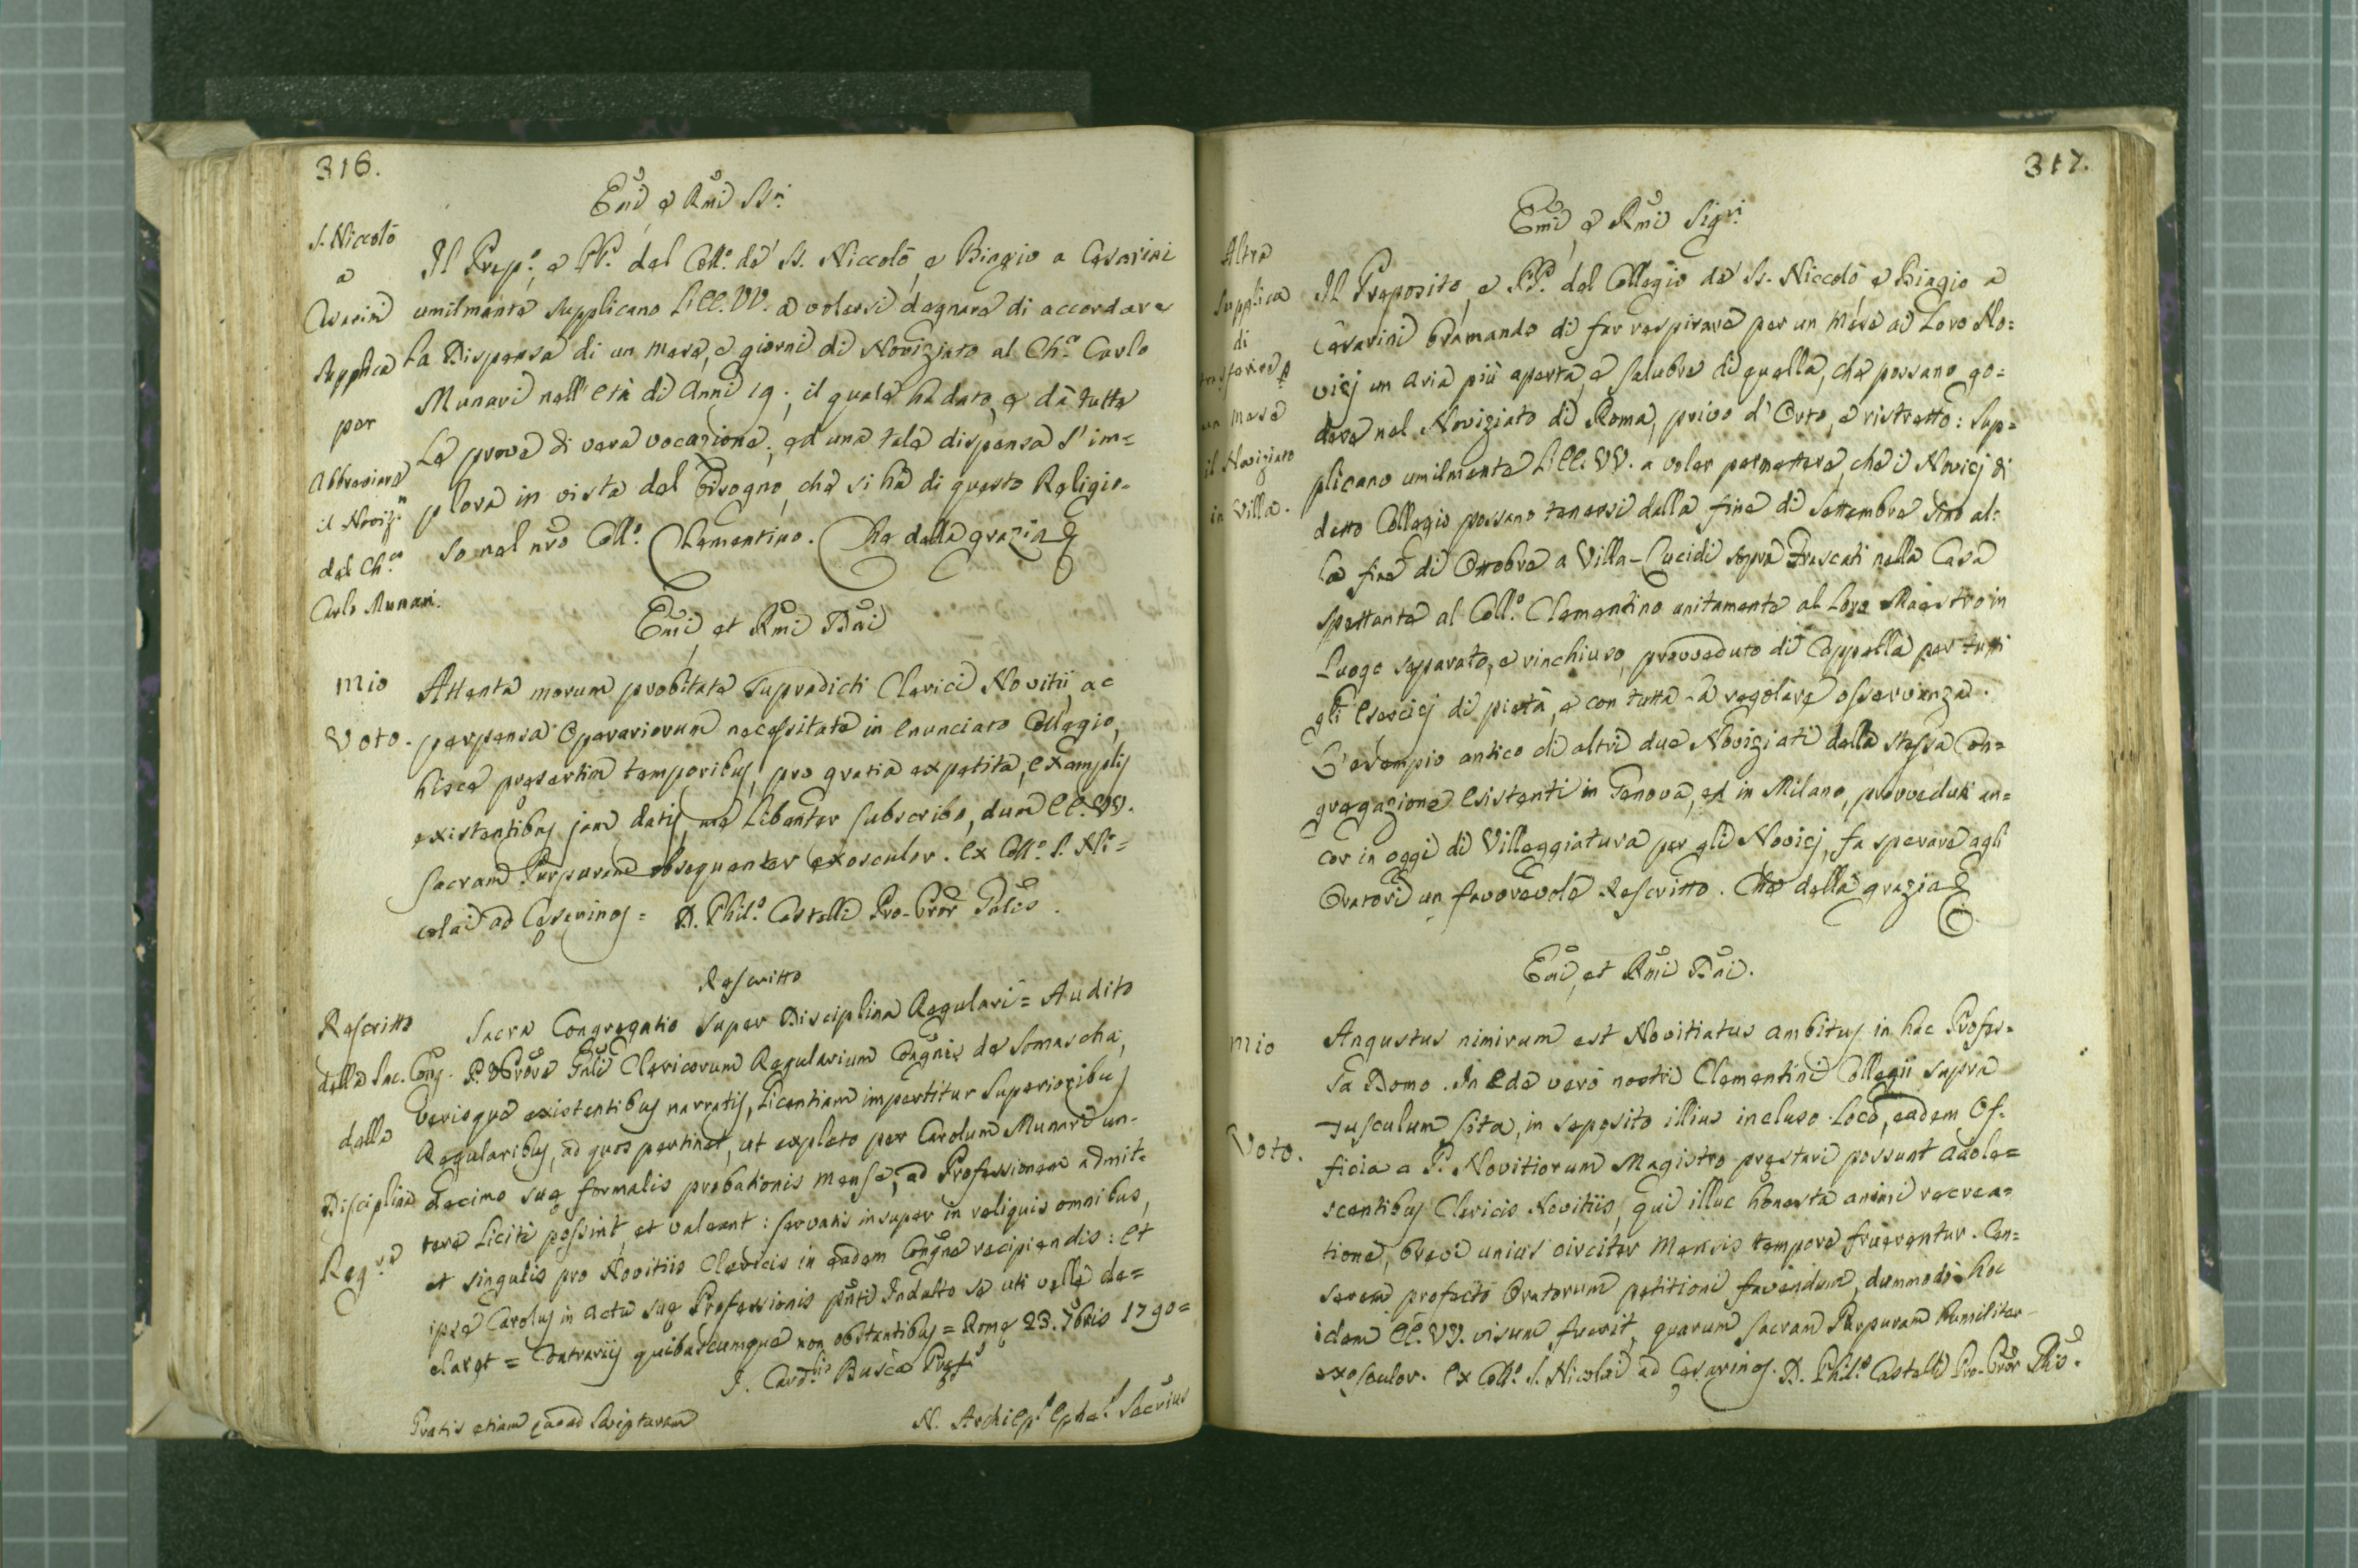 316.
Em̃i e Rm̃i SSri
S. Niccolò
a
Cesarini
Supplica
per
Abbreviare
il Noviz.to
del Ch.co
Carlo Munari.
Il Prep.o, e PP. del Coll.o de' SS. Niccolò, e Biagio a Cesarini
umilmente supplicano l'EE. VV. a volersi degnare di accordare
La Dispensa di un mese, e giorni di Noviziato al Ch.co Carlo
Munari nell'età di Anni 19., il quale ha dato, e dà tutte
Le prove di vera vocazione; ed una tale dispensa s'im=
plora in vista del bisogno, che si ha di questo Religio=
so nel nr̃o Coll.o Clementino. Che della grazia &
Em̃i et Rm̃i Dñi
Mio
Voto.
Attenta morum probitate supradicti Clerici Novitii, ac
perpensa Operariorum necessitate in enunciato Collegio,
hisce presertim temporibus, pro gratia expetita, exemplis
existentibus jam datis, me libenter subscribo, dum EE. VV.
sacram Purpuram obsequenter exosculor. Ex Coll.o S. Ni=
colai ad Cesarinos = D. Phil.s Castelli Pro-Prõr Gãlis.
Rescritto
Rescritto
della Sac. Cong.
della
Disciplina
Reg.re
Sacra Congregatio super Disciplina Regulari = Audito
P. Prõre Gñli Clericorum Regularium Congñis de Somascha,
verisque existentibus narratis, Licentiam impertitur Superioribus
Regularibus, ad quos pertinet, ut expleto per Carolum Munari un=
decimo suę formalis probationis mense, ad Professionem admit=
tere licitè possint, et valeant: servatis insuper in reliquis omnibus,
et singulis pro Novitiis Clericis in eadem Congñe recipiendis: Et
ipse Carolus in actu suę Professionis pñti Indulto se uti velle de=
claret = Contrariis quibuscumque non obstantibus = Romę 23. 7bris 1790 =
I. Card.lis Busca Pręf.s
Gratis etiam quoad Scripturam
N. Archiep.s Ephes. Secrius
317.
Em̃i, e Rm̃i Sig.ri
Altra
Supplica
di
trasferire p
un mese
il Noviziato
in Villa.
Il Preposito, e PP. del Collegio de' SS. Niccolò e Biagio a
Cesarini bramando di far respirare per un Mese ai Loro No=
vizj un aria più aperta, e salubre di quella, che possano go=
dere nel Noviziato di Roma, privo d'Orto, e ristretto: Sup=
plicano umilmente l'EE. VV. a voler permettere, che i Novizj di
detto Collegio possano tenersi dalla fine di Settembre sino al=
la fine di Ottobre a Villa-Lucidi sopra Frascati nella Casa
spettante al Coll.o Clementino unitamente al Loro Maestro in
Luogo separato, e rinchiuso, provveduto di Cappella per tutti
gli Esercizj di pietà, e con tutta la regolare osservanza.
L'esempio antico di altri due Noviziati della stessa Con=
gregazione esistenti in Genova, ed in Milano, provveduti an=
cor in oggi di Villeggiatura per gli Novizj, fa sperare agli
Oratori un favorevole Rescritto. Che della grazia &
Em̃i, et Rm̃i Dñi.
Mio
Voto.
Angustus nimirum est Novitiatus ambitus in hac Profes=
sa Domo. In Ede verò nostri Clementini Collegii supra
Tusculum sita, in seposito illius incluso Loco, eadem Of=
ficia a P. Novitiorum Magistro prestari possunt adole=
scentibus Clericis Novitiis, qui illuc honesta animi recrea=
tione, brevi unius circiter Mensis tempore fruerentur. Cen=
serem profectò Oratorum petitioni favendum, dummodo hoc
idem EE. VV. visum fuerit, quarum sacram Purpuram humiliter
exosculor. Ex Coll.o S. Nicolai ad Cesarinos. D. Phil.s Castelli Pro-Prõr Glis.